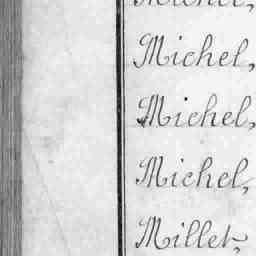 Michel,
Michel,
Michel,
Michel,
Millet,